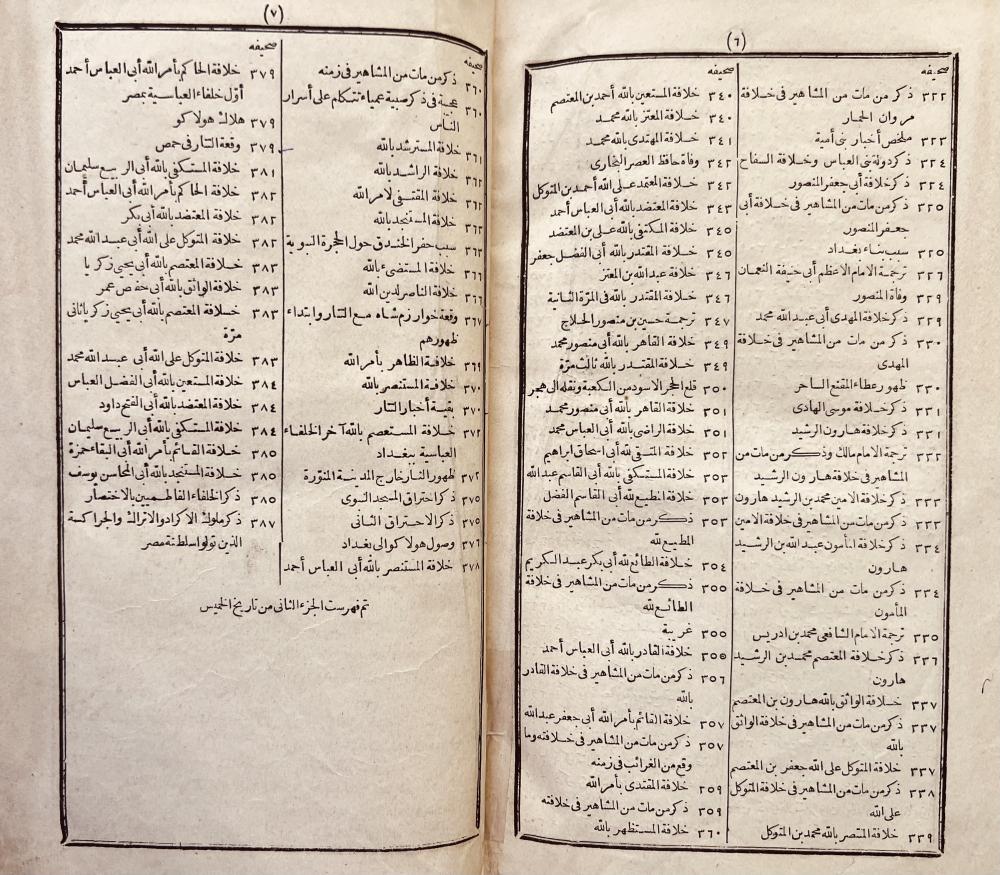 (٦)
صحيفه
٣٢٢ ذكر من مات من المشاهير فى خلافة
مروان الحمار
٣٢٣ ملخص أخبار بنى أمية
٣٢٤ ذكردولة بنى العباس وخلافة السفاح
٣٢٤ ذكر خلافة أبى جعفر المنصور
٣٢٥ ذكر من مات من المشاهير فى خلافة أبى
جعفر المنصور
٣٢٥ سبب بناء بغداد
٣٢٦ ترجمة الامام الاعظم أبى حنيفة النعمان
٣٢٩ وفاة المنصور
٣٢٩ ذكر خلافة المهدى أبى عبد الله محمد
٣٣٠ ذكر من مات من المشاهير فى خلافة
المهدى
٣٣٠ ظهور عطاء المقنع الساحر
٣٣١ ذكر خلافة موسى الهادى
٣٣١ ذكر خلافة هارون الرشيد
٣٣٢ ترجمة الامام مالك وذكر من مات من
المشاهير فى خلافة هارون الرشيد
٣٣٣ ذكر خلافة الامين محمد بن الرشيد هارون
٣٣٣ ذكر من مات من المشاهير فى خلافة الامين
٣٣٤ ذكر خلافة المأمون عبد الله بن الرشيد
هارون
٣٣٤ ذكر من مات من المشاهير فى خلافة
المأمون
٣٣٥ ترجمة الامام الشافعى محمد بن ادريس
٣٣٦ ذكر خلافة المعتصم محمد بن الرشيد
هارون
٣٣٧ خلافة الواثق بالله هارون بن المعتصم
٣٣٧ ذكر من مات من المشاهير فى خلافة الواثق
بالله
٣٣٧ خلافة المتوكل على الله جعفر بن المعتصم
٣٣٨ ذكر من مات من المشاهير فى خلافة المتوكل
على الله
٣٣٩ خلافة المنتصر بالله محمد بن المتوكل
صحيفه
٣٤٠ خلافة المستعين بالله أحمد بن المعتصم
٣٤٠ خلافة المعتز بالله محمد
٣٤١ خلافة المهتدى بالله محمد
٣٤٢ وفاة حافظ العصر البخارى
٣٤٢ خلافة المعتمد على الله أحمد بن المتوكل
٣٤٣ خلافة المعتضد بالله أبى العباس أحمد
٣٤٥ خلافة المكتفى بالله على بن المعتضد
٣٤٥ خلافة المقتدر بالله أبى الفضل جعفر
٣٤٦ خلافة عبد الله بن المعتز
٣٤٦ خلافة المقتدر بالله فى المرّة الثانية
٣٤٧ ترجمة حسين بن منصور الحلاج
٣٤٩ خلافة القاهر بالله أبى منصور محمد
٣٤٩ خلافة المقتدر بالله ثالث مرّة
٣٥٠ قلع الحجر الاسود من الكعبة ونقله الى هجر
٣٥١ خلافة القاهر بالله أبى منصور محمد
٣٥١ خلافة الراضى بالله أبى العباس محمد
٣٥٢ خلافة المتقى لله أبى اسحاق ابراهيم
٣٥٣ خلافة المستكفى بالله أبى القاسم عبد الله
٣٥٣ خلافة المطيع لله أبى القاسم الفضل
٣٥٣ ذكر من مات من المشاهير فى خلافة
المطيع لله
٣٥٤ خلافة الطائع لله أبى بكر عبد الكريم
٣٥٥ ذكر من مات من المشاهير فى خلافة
الطائع لله
٣٥٥ غريبة
٣٥٥ خلافة القادر بالله أبى العباس أحمد
٣٥٦ ذكر من مات من المشاهير فى خلافة القادر
بالله
٣٥٧ خلافة القائم بأمر الله أبى جعفر عبد الله
٣٥٧ ذكر من مات من المشاهير فى خلافته وما
وقع من الغرائب فى زمنه
٣٥٩ خلافة المقتدى بأمر الله
٣٥٩ ذكر من مات من المشاهير فى خلافته
٣٦٠ خلافة المستظهر بالله
(٧)
صحيفه
٣٦٠ ذكر من مات من المشاهير فى زمنه
٣٦٠ عجيبة فى ذكر صبية عمياء تتكلم على أسرار
الناس
٣٦١ خلافة المسترشد بالله
٣٦٢ خلافة الراشد بالله
٣٦٢ خلافة المقتفى لامر الله
٣٦٣ خلافة المستنجد بالله
٣٦٣ سبب حفر الخندق حول الحجرة النبوية
٣٦٦ خلافة المستضىء بالله
٣٦٦ خلافة الناصر لدين الله
٣٦٧ وقعة خوارزم شاه مع التتار وابتداء
ظهورهم
٣٦٩ خلافة الظاهر بأمر الله
٣٧٠ خلافة المستنصر بالله
٣٧٠ بقية أخبار التتار
٣٧٢ خلافة المستعصم بالله آخر الخلفاء
العباسية ببغداد
٣٧٢ ظهور النار خارج المدينة المنوّرة
٣٧٥ ذكر احتراق المسجد النبوى
٣٧٥ ذكر الاحتراق الثانى
٣٧٦ وصول هولاكو الى بغداد
٣٧٨ خلافة المستنصر بالله أبى العباس أحمد
صحيفه
٣٧٩ خلافة الحاكم بأمر الله أبى العباس أحمد
أوّل خلفاء العباسية بمصر
٣٧٩ هلاك هولاكو
٣٧٩ وقعة التتار فى حمص
٣٨١ خلافة المستكفى بالله أبى الربيع سليمان
٣٨٢ خلافة الحاكم بأمر الله أبى العباس أحمد
٣٨٢ خلافة المعتضد بالله أبى بكر
٣٨٢ خلافة المتوكل على الله أبى عبد الله محمد
٣٨٣ خلافة المعتصم بالله أبى يحيى زكريا
٣٨٣ خلافة الواثق بالله أبى حفص عمر
٣٨٣ خلافة المعتصم بالله أبى يحيى زكريا ثانى
مرّة
٣٨٣ خلافة المتوكل على الله أبى عبد الله محمد
٣٨٤ خلافة المستعين بالله أبى الفضل العباس
٣٨٤ خلافة المعتضد بالله أبى الفتح داود
٣٨٤ خلافة المستكفى بالله أبى الربيع سليمان
٣٨٥ خلافة القائم بأمر الله أبى البقاء حمزة
٣٨٥ خلافة المستنجد بالله أبى المحاسن يوسف
٣٨٥ ذكر الخلفاء الفاطميين بالاختصار
٣٨٧ ذكر ملوك الاكراد والاتراك والجراكسة
الذين تولوا سلطنة مصر
تم فهرست الجزء الثانى من تاريخ الخميس